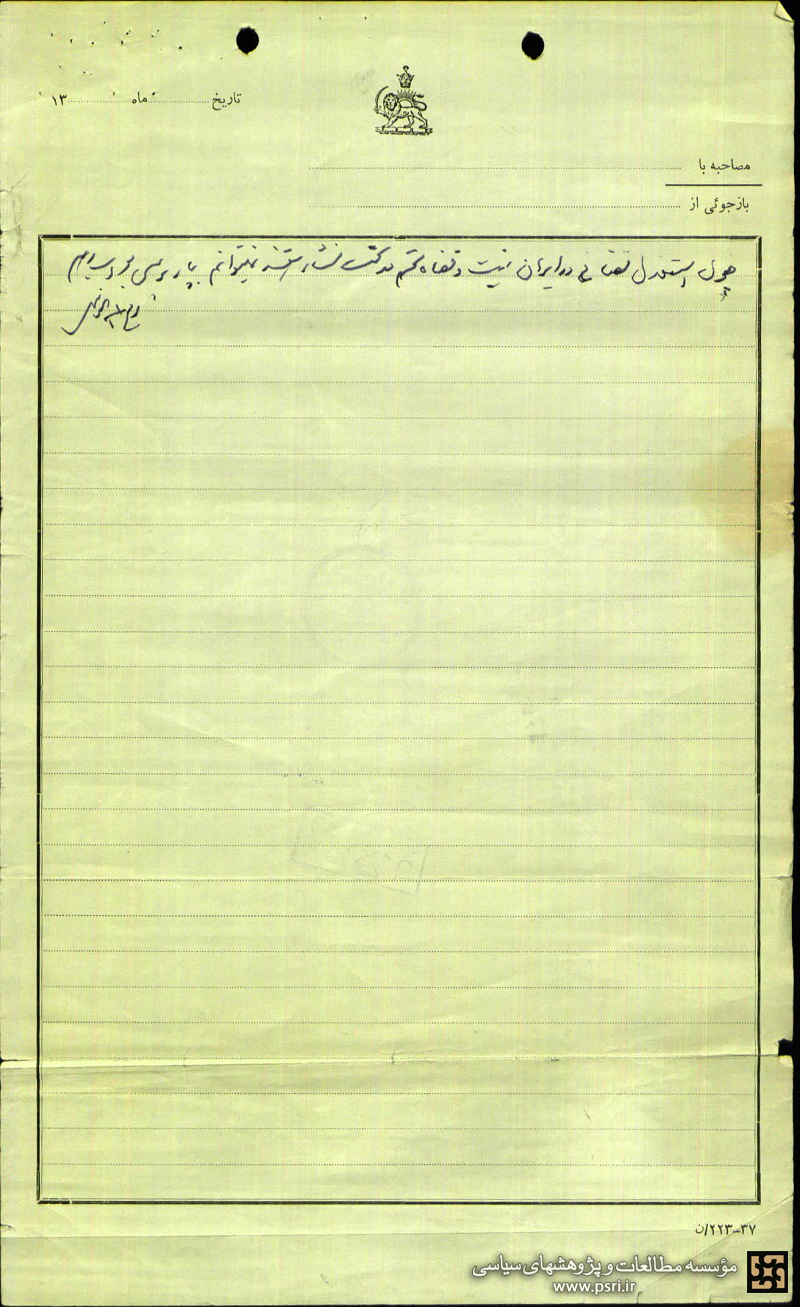 تاریخ ............ ماه ............ ۱۳
مصاحبه با
بازجوئی از
چون استقلال قضائی در ایران نیست و قضاه محترم در تحت فشار هستند نمیتوانم بپاز پرسی جواب بدهم
روح الله الخمینی
۳۷–۲۲۳/ن
مؤسسه مطالعات و پژوهشهای سیاسی
www.psri.ir